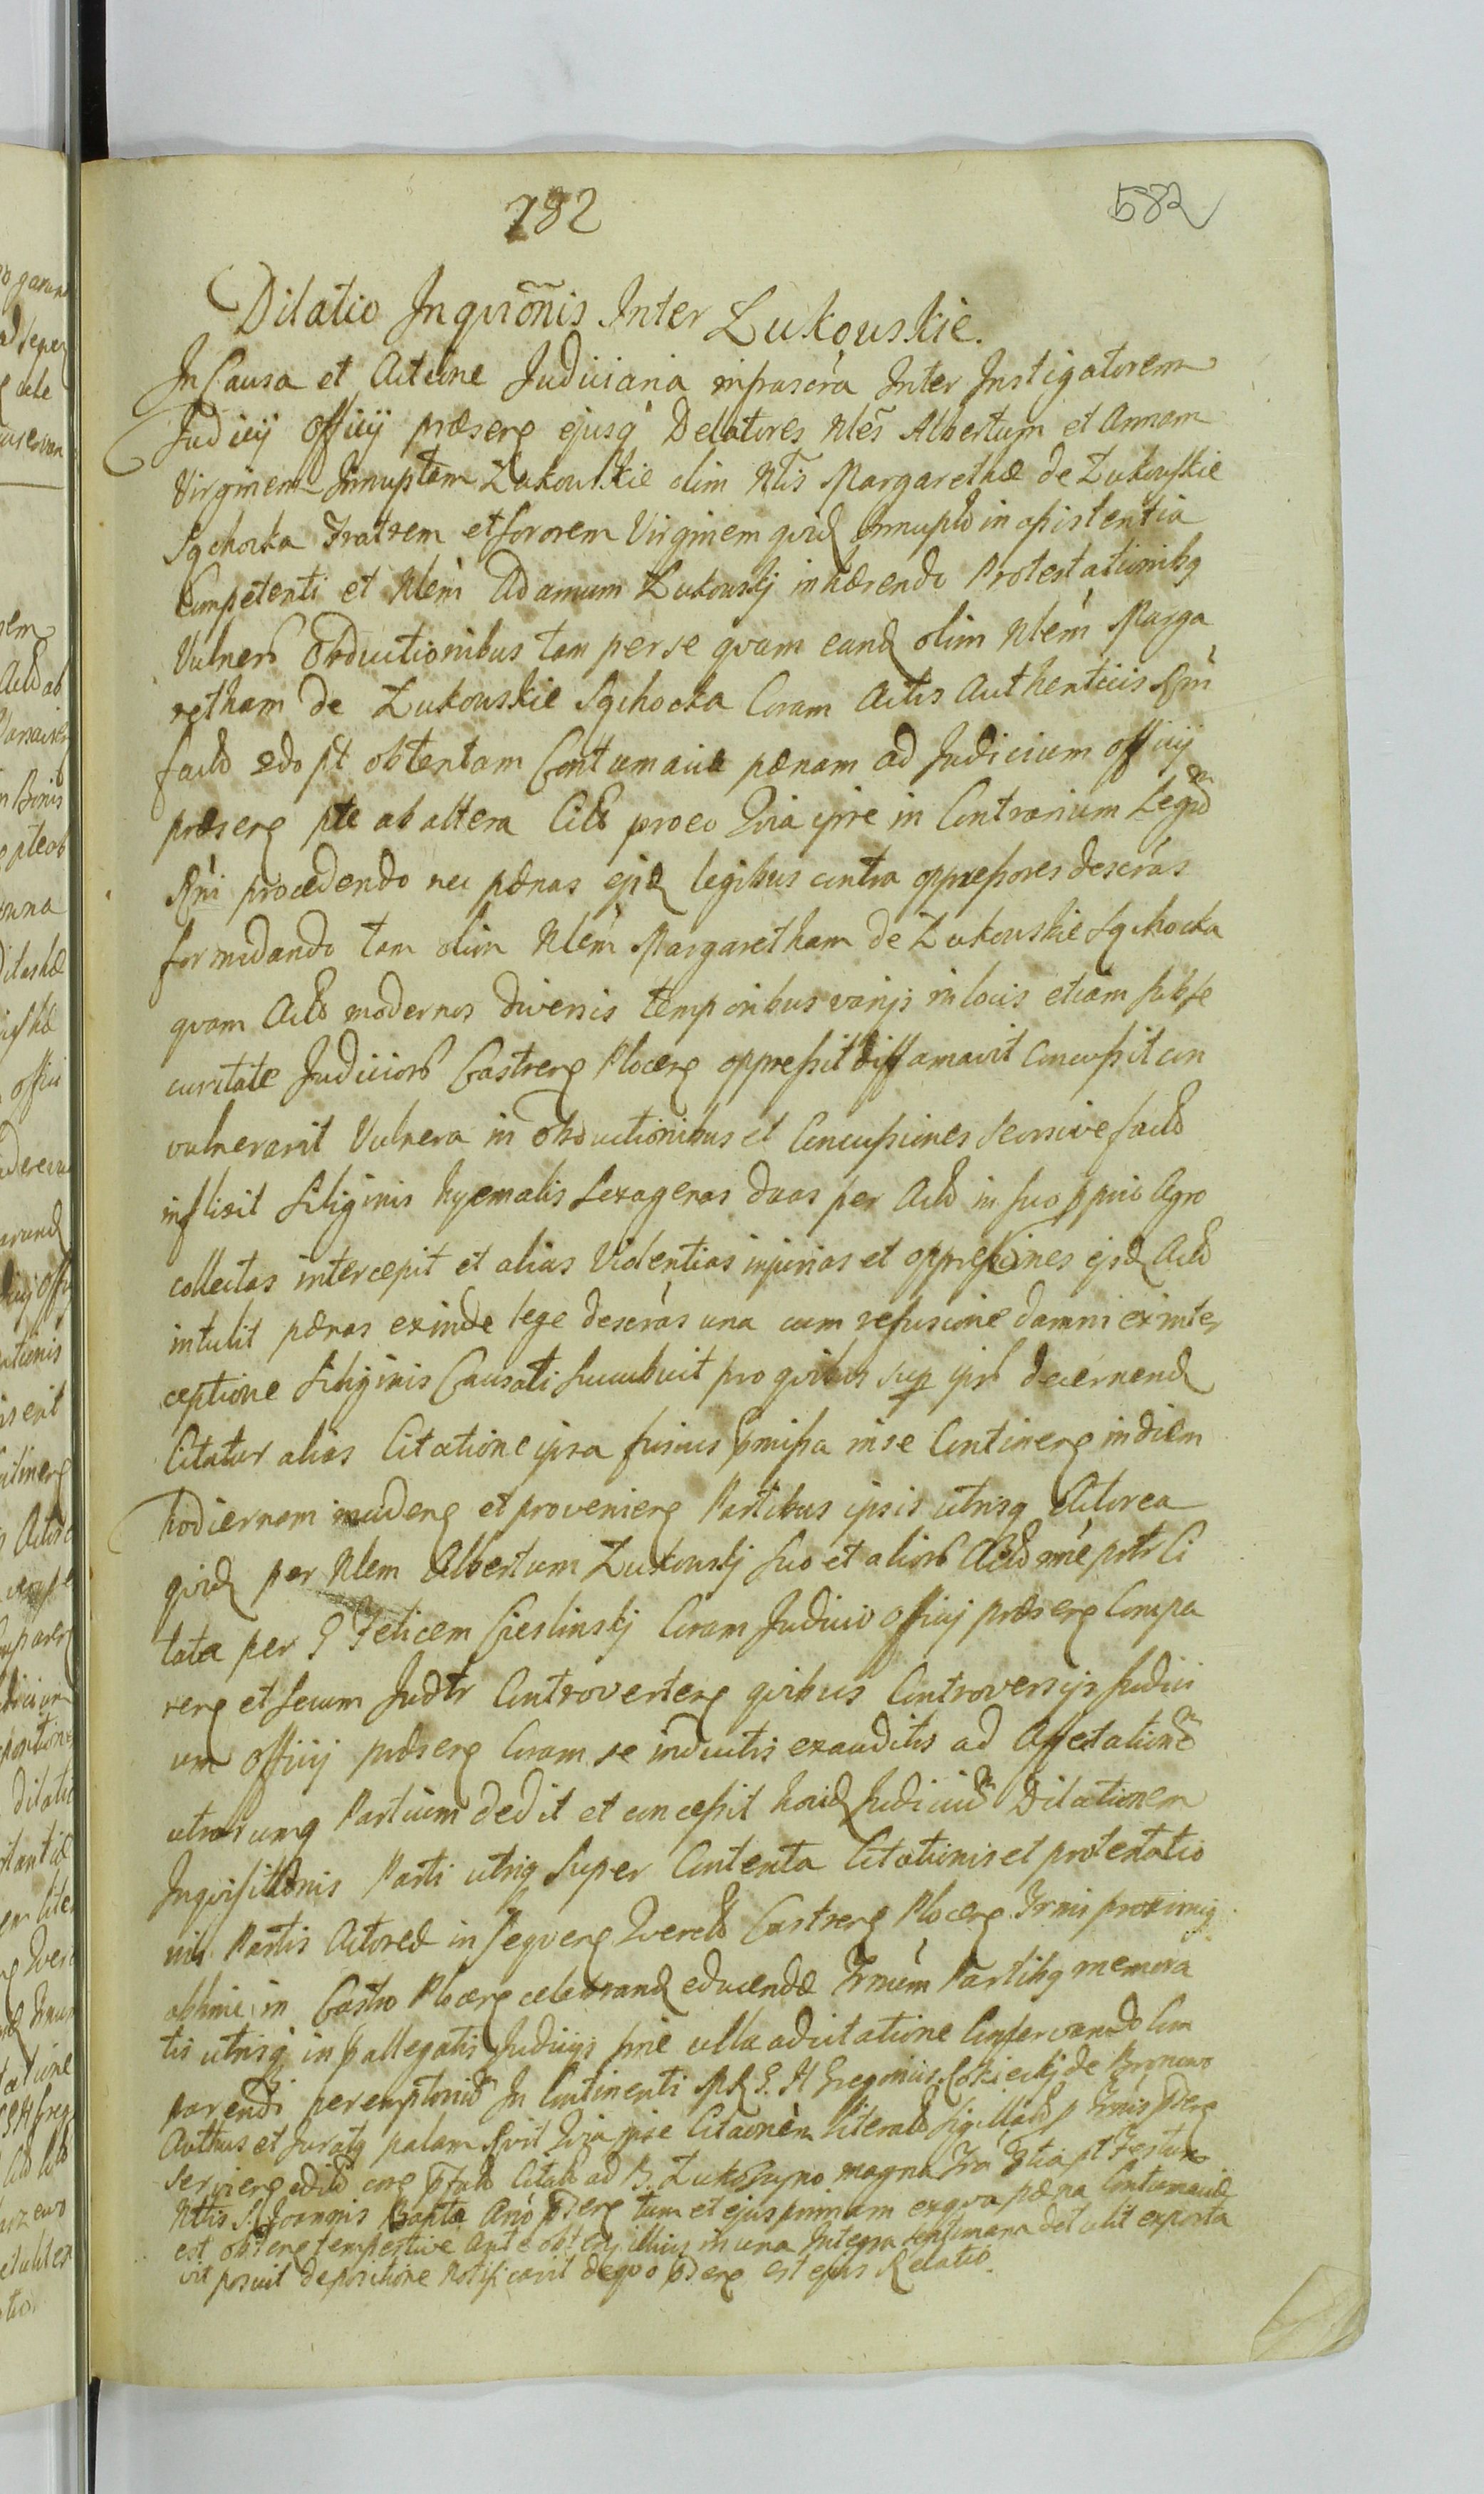 782
582
Dilatio Inqviõnis Inter Żukowskie.
In Causa et Actione Judiciaria infrascra Inter Instigatorem
Judicij Officij præsere ejusq Delatores Nles Albertum et Annam
Virginem Innuptam Zukowskie olim Nlis Margarethæ de Zukowskie
Sqchocka Fratrem et sororem Virginem qvid Innupta in assistentia
Competenti et Nlem Adamum Żukowskj inhærendo Protestationibq
Vulner Obductionibus tam per se qvam eand olim Nlem Marga
retham de Zukowskie Sqchocka Coram Actis Authenticis
fact obtentam Contumaciæ pænam ad Judicium officij
præsere pte ab altera Cit pro eo Qvia ipse in Contrarium Legũ
Rni procedendo nec pænas ejsd legibus contra oppressores descras
formidando tam olim Nlem Margaretham de Zukowskie Sqchocka
qvam Act modernos diversis temporibus varijs in locis etiam sub se
curitate Judicior Castrere Plocere oppressit diffamavit concussit con
vulneravit Vulnera in Obductionibus et Concussiones seorsive fact
inflixit Siliginis hyemalis Sexagenas duas per Act in suo pprio Agro
collectas intercepit et alias Violentias injurias et oppressiones ejsd Act
intulit pænas exinde lege descras una cum refusione damni ex inter
ceptione Siliginis Causati succubuit pro qvibus sup ips decernend
Citatur alias Citatione ipsa fusius pmissa in se Continere in diem
hodiernam incidere et proveniere Partibus ipsis utrisq Actorea
qvid per Nlem Albertum Zukowskj suo et alior Act nne pntr Ci
tata per G Felicem Cieslinskj Coram Judicio officij præsere Compa
rere et secum Judtr Controvertere qvibus Controversijs Judici
um officij præsere Coram se inductis exauditis ad Affectationẽ
utrarumq Partium dedit et concessit Dilationem
Inqvisitionis Parti utriq super Contenta Citationis et protestatio
nis Partis Actoreæ in seqvere Qverel Castrere Plocere Trnis proximiq
abhinc in Castro Plocere celebrand educendæ Trnum Partibq memora
tis utrisq in pallegatis Judicijs sine ulla adcitatione Conservando Com
parendi peremptoriũ In Continenti M G. H Gregorius de Bronowo
Authus et Juratq palam Rcvit Qvia ipse Citaonem literal Sigillat p Trnis psere
serviere edit ptat Citat ad B. Zukowo magna Fra Festum
Nttis S. Joannis Bapta Ano psere tum et ejus primam ex qva pæna Contumaciæ
est tempestive Ante illius in una Integra septimana detulit exporta
vit posuit depositione Notificavit de qvo psere est ejus Relatio.